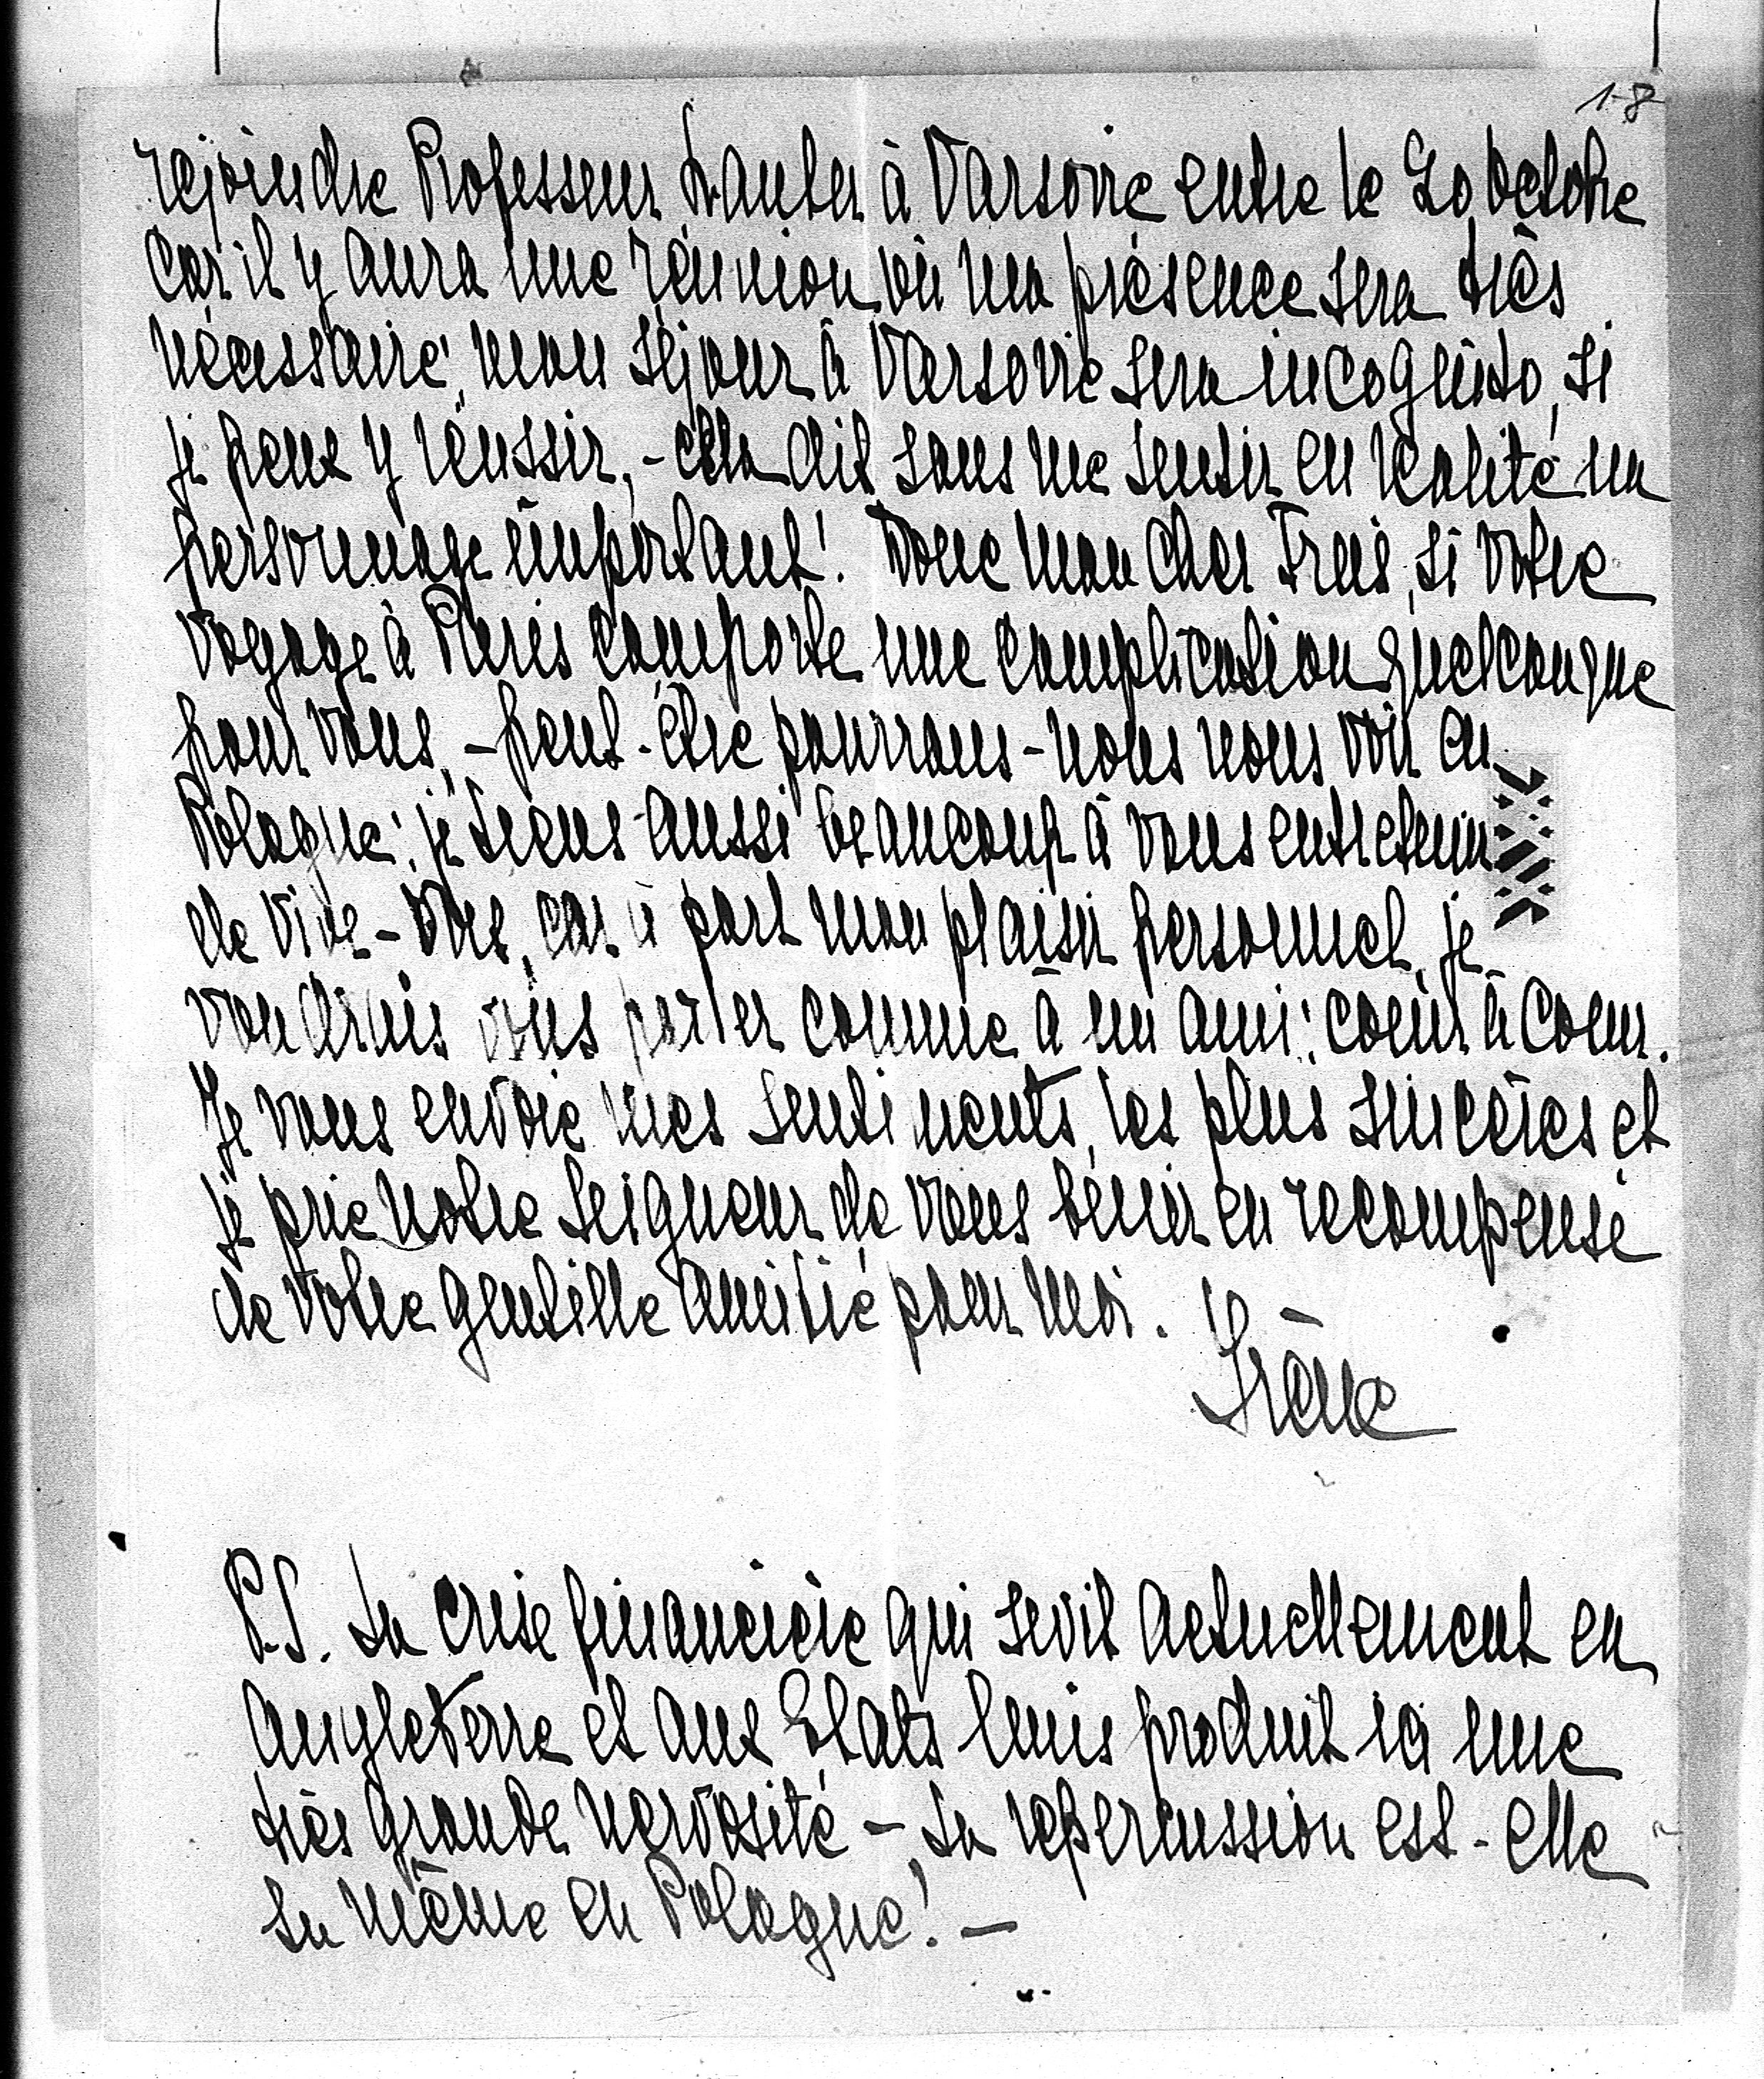 18
rejoindre Professeur à Varsovie entre le 20 Octobre
car il y aura une réunion où ma présence sera très
nécessaire; mon séjour à Varsovie sera incognito, si
je peux y réussir, - cela dit sans me sentir en réalité un
personnage important! Donc mon cher si votre
voyage à Paris comporte une complication quelconque
pour vous, - peut-être pourrons-nous nous voir en
Pologne: je tiens aussi beaucoup à vous entretenir
de vive-voix, car à part mon plaisir personnel, je
voudrais vous parler comme à un ami: coeur à coeur.
Je vous envoie mes sentiments, les plus sincères et
je prie notre Seigneur de vous bénir en recompense
de votre gentille amitié pour moi.
Irène
P.S. La crise financière qui sevit actuellement en
Angleterre et aux Etats Unis produit ici une
très grande nervosité - la repercussion est-elle
la même en Pologne! -